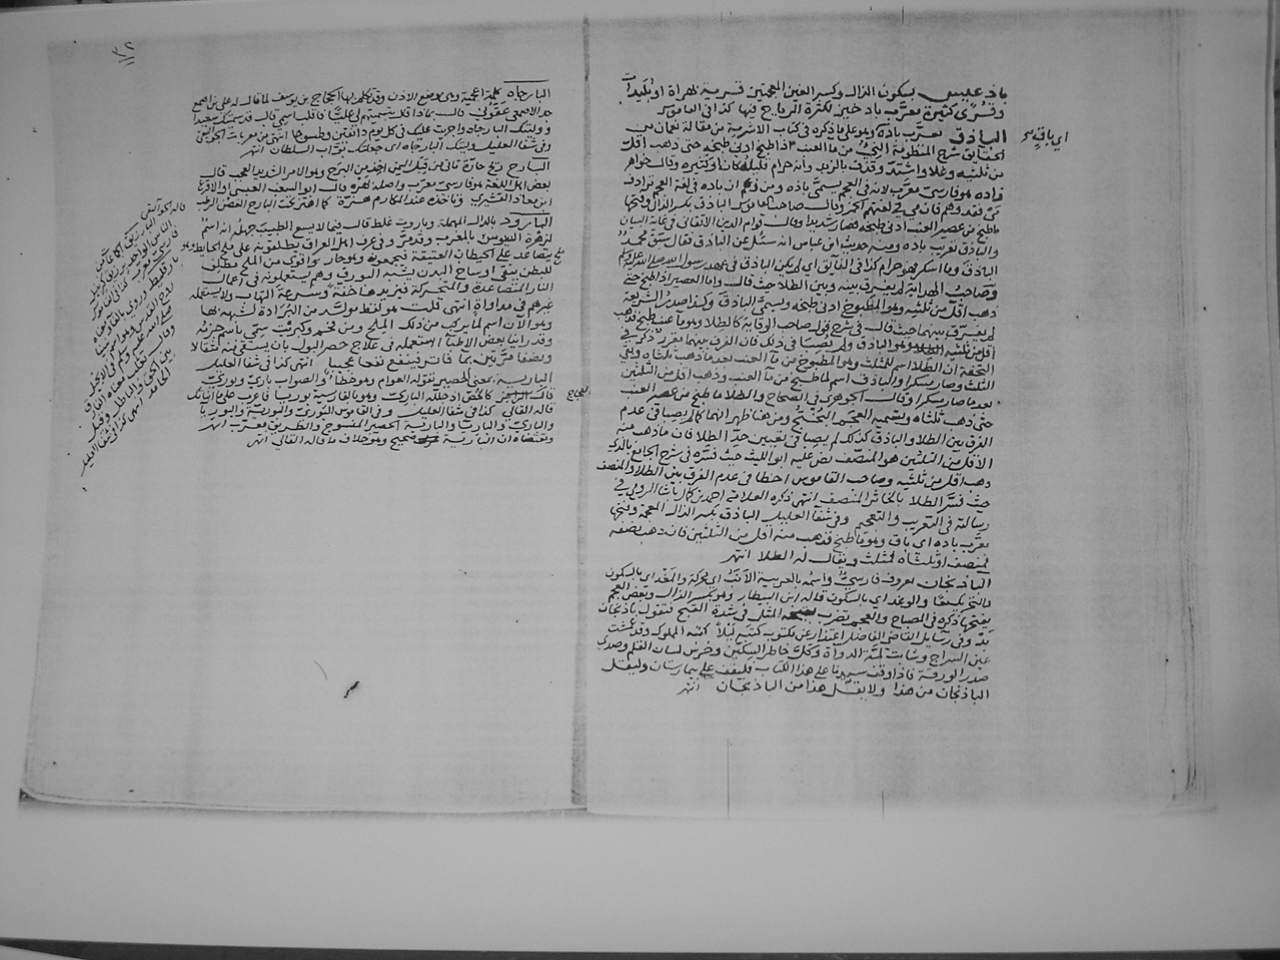 باذغيس بسكون الذال وكسر الغين المعجمتين قرية بهراة او بليدات
وقرى كثيرة معرب باد خيز لكثرة الرياح فيها كذا في القاموس
الباذق معرب باده وهو على ما ذكره في كتاب الاشربة من مقالة نعمان من
شرح المنظومة النيء من ماء العنب اذا طبخ ادنى طبخة حتى ذهب اقل
من ثلثيه وغلا واشتد وقذف بالزبد وانه حرام قليله كان او كثيره وقال خواهر
زاده هو فارسي معرب لانه في العجم يسمى باده ومن
ماطبخ من عصير العنب ادنى طبخة فصار شديدا وقال قوام الدين الاتقاني في غاية البيان
والباذق تعريب باده ومنه حديث ابن عباس انه سئل عن الباذق فقال سبق محمد
الباذق وما اسكر فهو حرام كذا في الفائق اي لم يكن الباذق في عهد رسول الله صلى الله عليه وسلم
وصاحب الهداية لم يفرق بينه وبين الطلا حيث قال واما العصير اذا طبخ حتى
ذهب اقل من ثلثيه وهو المطبوخ ادنى طبخة ويسمى الباذق وكذا صدر الشريعة
لم يفرق بينهما حيث قال في شرح قول صاحب الوقاية كالطلا وهو ماء عنب طبخ فذهب
اقل من ثلثيه ولم يصيبا في ذلك فان الفرق بينهما مقرر ذكر في
التحفة ان الطلا اسم للمثلث وهو المطبوخ من ماء العنب بعد ما ذهب ثلثاه وبقي
الثلث وصار مسكرا والباذق اسم لما طبخ من ماء العنب وذهب اقل من الثلثين
بعد ما صار مسكرا وقال الجوهري في الصحاح والطلا ما طبخ من عصير العنب
حتى ذهب ثلثاه وتسميه العجم البختج ومن هنا ظهر انهما كما لم يصيبا في عدم
الفرق بين الطلا والباذق كذلك لم يصيبا في تعيين حد الطلا فان ما ذهب منه
الاقل من الثلثين هو المنصف نص عليه ابو الليث حيث فسره في شرح الجامع بالذي
ذهب اقل من ثلثيه وصاحب القاموس اخطا في عدم الفرق بين الطلا والمنصف
حيث فسر الطلا بالخاثر المنصف انتهى ذكره العلامة احمد بن كمال باشا الرومي في
رسالته في التعريب والتعجيم وفي شفا العليل الباذق بكسر الذال المعجمة وفتحها
معرب باده اي باق وهو ما طبخ فذهب منه اقل من الثلثين فان ذهب نصفه
فمنصف او ثلثاه فمثلث ويقال له الطلا انتهى
الباذنجان معروف فارسي واسمه بالعربية الانب اي محركة والمغد اي بالسكون
والوغد اي بالسكون قاله ابن البيطار وهو بكسر الذال وبعض العجم
يفتحها ذكره في المصباح والعجم تضرب المثل في شدة القبح فتقول باذنجان
بد وفي رسايل القاضي الفاضل اعتذار عن مكتوب كتبه ليلا كتبه المملوك وقد عمشت
عين السراج وشابت لمة الدواة وكل خاطر السكين وخرس لسان القلم وضاق
صدر الورقة فاذا وقف سيدنا على هذا الكتاب فليقف على بيمارستان وليقل
الباذنجان من هذا ولا يقل هذا من الباذنجان انتهى
البارجاه كلمة اعجمية وهي موضع الاذن وقد تكلم بها الحجاج بن يوسف لما قال له علي بن اصمع
جد الاصمعي عقوني قال بماذا قال بتسميتهم لي عليا فاقلب اسمي قال قد سميتك سعيدا
ووليتك البارجاه واجريت عليك في كل يوم دانقين وطسوجا انتهى من معربات الجواليقي
وفي شفا العليل وليتك البارجاه اي جعلتك بواب السلطان انتهى
البارح ريح حارة تاتي من قبل اليمن اخذ من البرح وهو الامر الشديد العجب قال
بعض اهل اللغة هو فارسي معرب واصله
القشيري وتاخذه عند المكارم هزة كما اهتز تحت البارح الغصن الرطب
البارود بالدال المهملة وباروت غلط قال فيما لا يسع الطبيب جهله انه اسم
لزهرة اسيوس بالمغرب وفي عرف اهل العراق يطلقونه على ملح الحائط وهو ملح
يتصاعد على الحيطان العتيقة فيجمعونه وهو حار واقوى من الملح مطلق
للبطن ينقي اوساخ البدن يشبه البورق وهم يستعملونه في اعمال
النار المتصاعدة والمتحركة فيزيدها خفة وسرعة التهاب ولا يستعمله
غيرهم في مداواة انتهى قلت هو لفظ مولد من البرادة لشبهه بها
وهو الآن اسم لما يركب من ذلك الملح ومن فحم وكبريت سمي باسم جزئه
وقد راينا بعض الاطباء استعمله في علاج حصر البول بان يسقى منه مثقالا
ونصفا مرتين بما فاتر فينفع نفعا عجيبا انتهى كذا في شفا العليل
البارية بمعنى الحصير تقوله العوام وهو خطأ والصواب باري وبوري
قال كالخص اذ جلله الباري وهو بالفارسية بوريا فاعرب على ما انبأتك
قاله القالي كذا في شفا العليل وفي القاموس البوري والبورية والبوريا
والباري والباريا والبارية الحصير المنسوج والطريق معرب انتهى
ومقتضاه ان البارية صحيح وهو خلاف ما قاله القالي انتهى
للعجاج